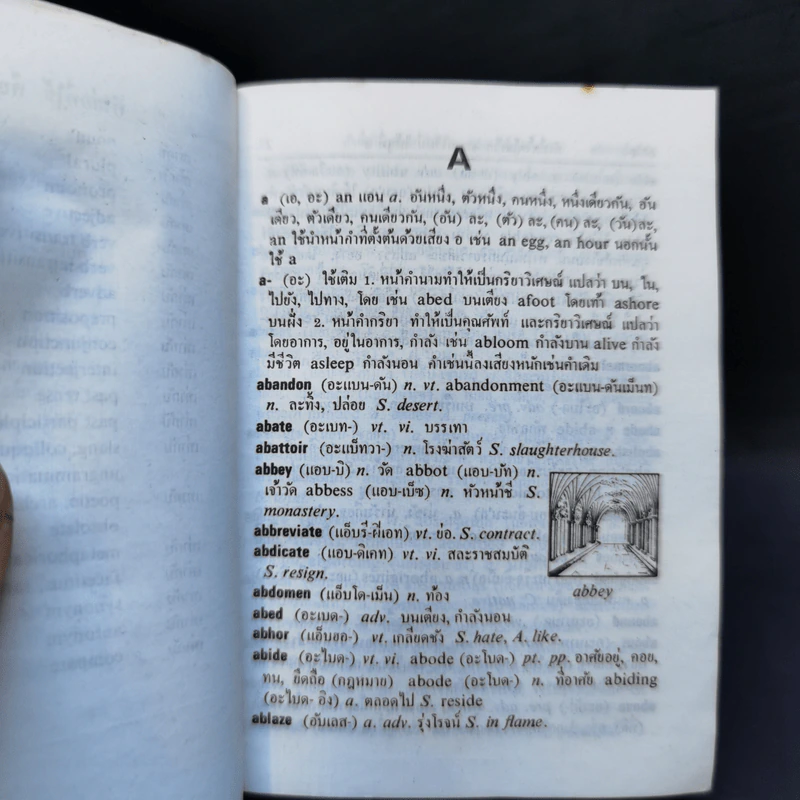 A
a (เอ, อะ) an แอน a. อันหนึ่ง, ตัวหนึ่ง, คนหนึ่ง, หนึ่งเดียวกัน, อัน
เดียว, ตัวเดียว, คนเดียวกัน, (อัน) ละ, (ตัว) ละ, (คน) ละ, (วัน) ละ,
an ใช้นำหน้าคำที่ตั้งต้นด้วยเสียง อ เช่น an egg, an hour นอกนั้น
ใช้ a
a- (อะ) ใช้เติม 1. หน้าคำนามทำให้เป็นกริยาวิเศษณ์ แปลว่า บน, ใน,
ไปยัง, ไปทาง, โดย เช่น abed บนเตียง afoot โดยเท้า ashore
บนฝั่ง 2. หน้าคำกริยา ทำให้เป็นคุณศัพท์ และกริยาวิเศษณ์ แปลว่า
โดยอาการ, อยู่ในอาการ, กำลัง เช่น abloom กำลังบาน alive กำลัง
มีชีวิต asleep กำลังนอน คำเช่นนี้ลงเสียงหนักเช่นคำเดิม
abandon (อะแบน-ดัน) n. vt. abandonment (อะแบน-ดันเม็นท)
n. ละทิ้ง, ปล่อย S. desert.
abate (อะเบท-) vt. vi. บรรเทา
abattoir (อะแบ็ททวา-) n. โรงฆ่าสัตว์ S. slaughterhouse.
abbey (แอบ-บิ) n. วัด abbot (แอบ-บัท) n.
เจ้าวัด abbess (แอบ-เบ็ซ) n. หัวหน้าชี S.
monastery.
abbreviate (แอ็บรี-ฝีเอท) vt. ย่อ. S. contract.
abdicate (แอบ-ดิเคท) vt. vi. สละราชสมบัติ
S. resign.
abbey
abdomen (แอ็บโด-เม็น) n. ท้อง
abed (อะเบด-) adv. บนเตียง, กำลังนอน
abhor (แอ็บฮอ-) vt. เกลียดชัง S. hate, A. like.
abide (อะไบด-) vt. vi. abode (อะโบด-) pt. pp. อาศัยอยู่, คอย,
ทน, ยึดถือ (กฎหมาย) abode (อะโบด-) n. ที่อาศัย abiding
(อะไบด- อิง) a. ตลอดไป S. reside
ablaze (อับเลส-) a. adv. รุ่งโรจน์ S. in flame.